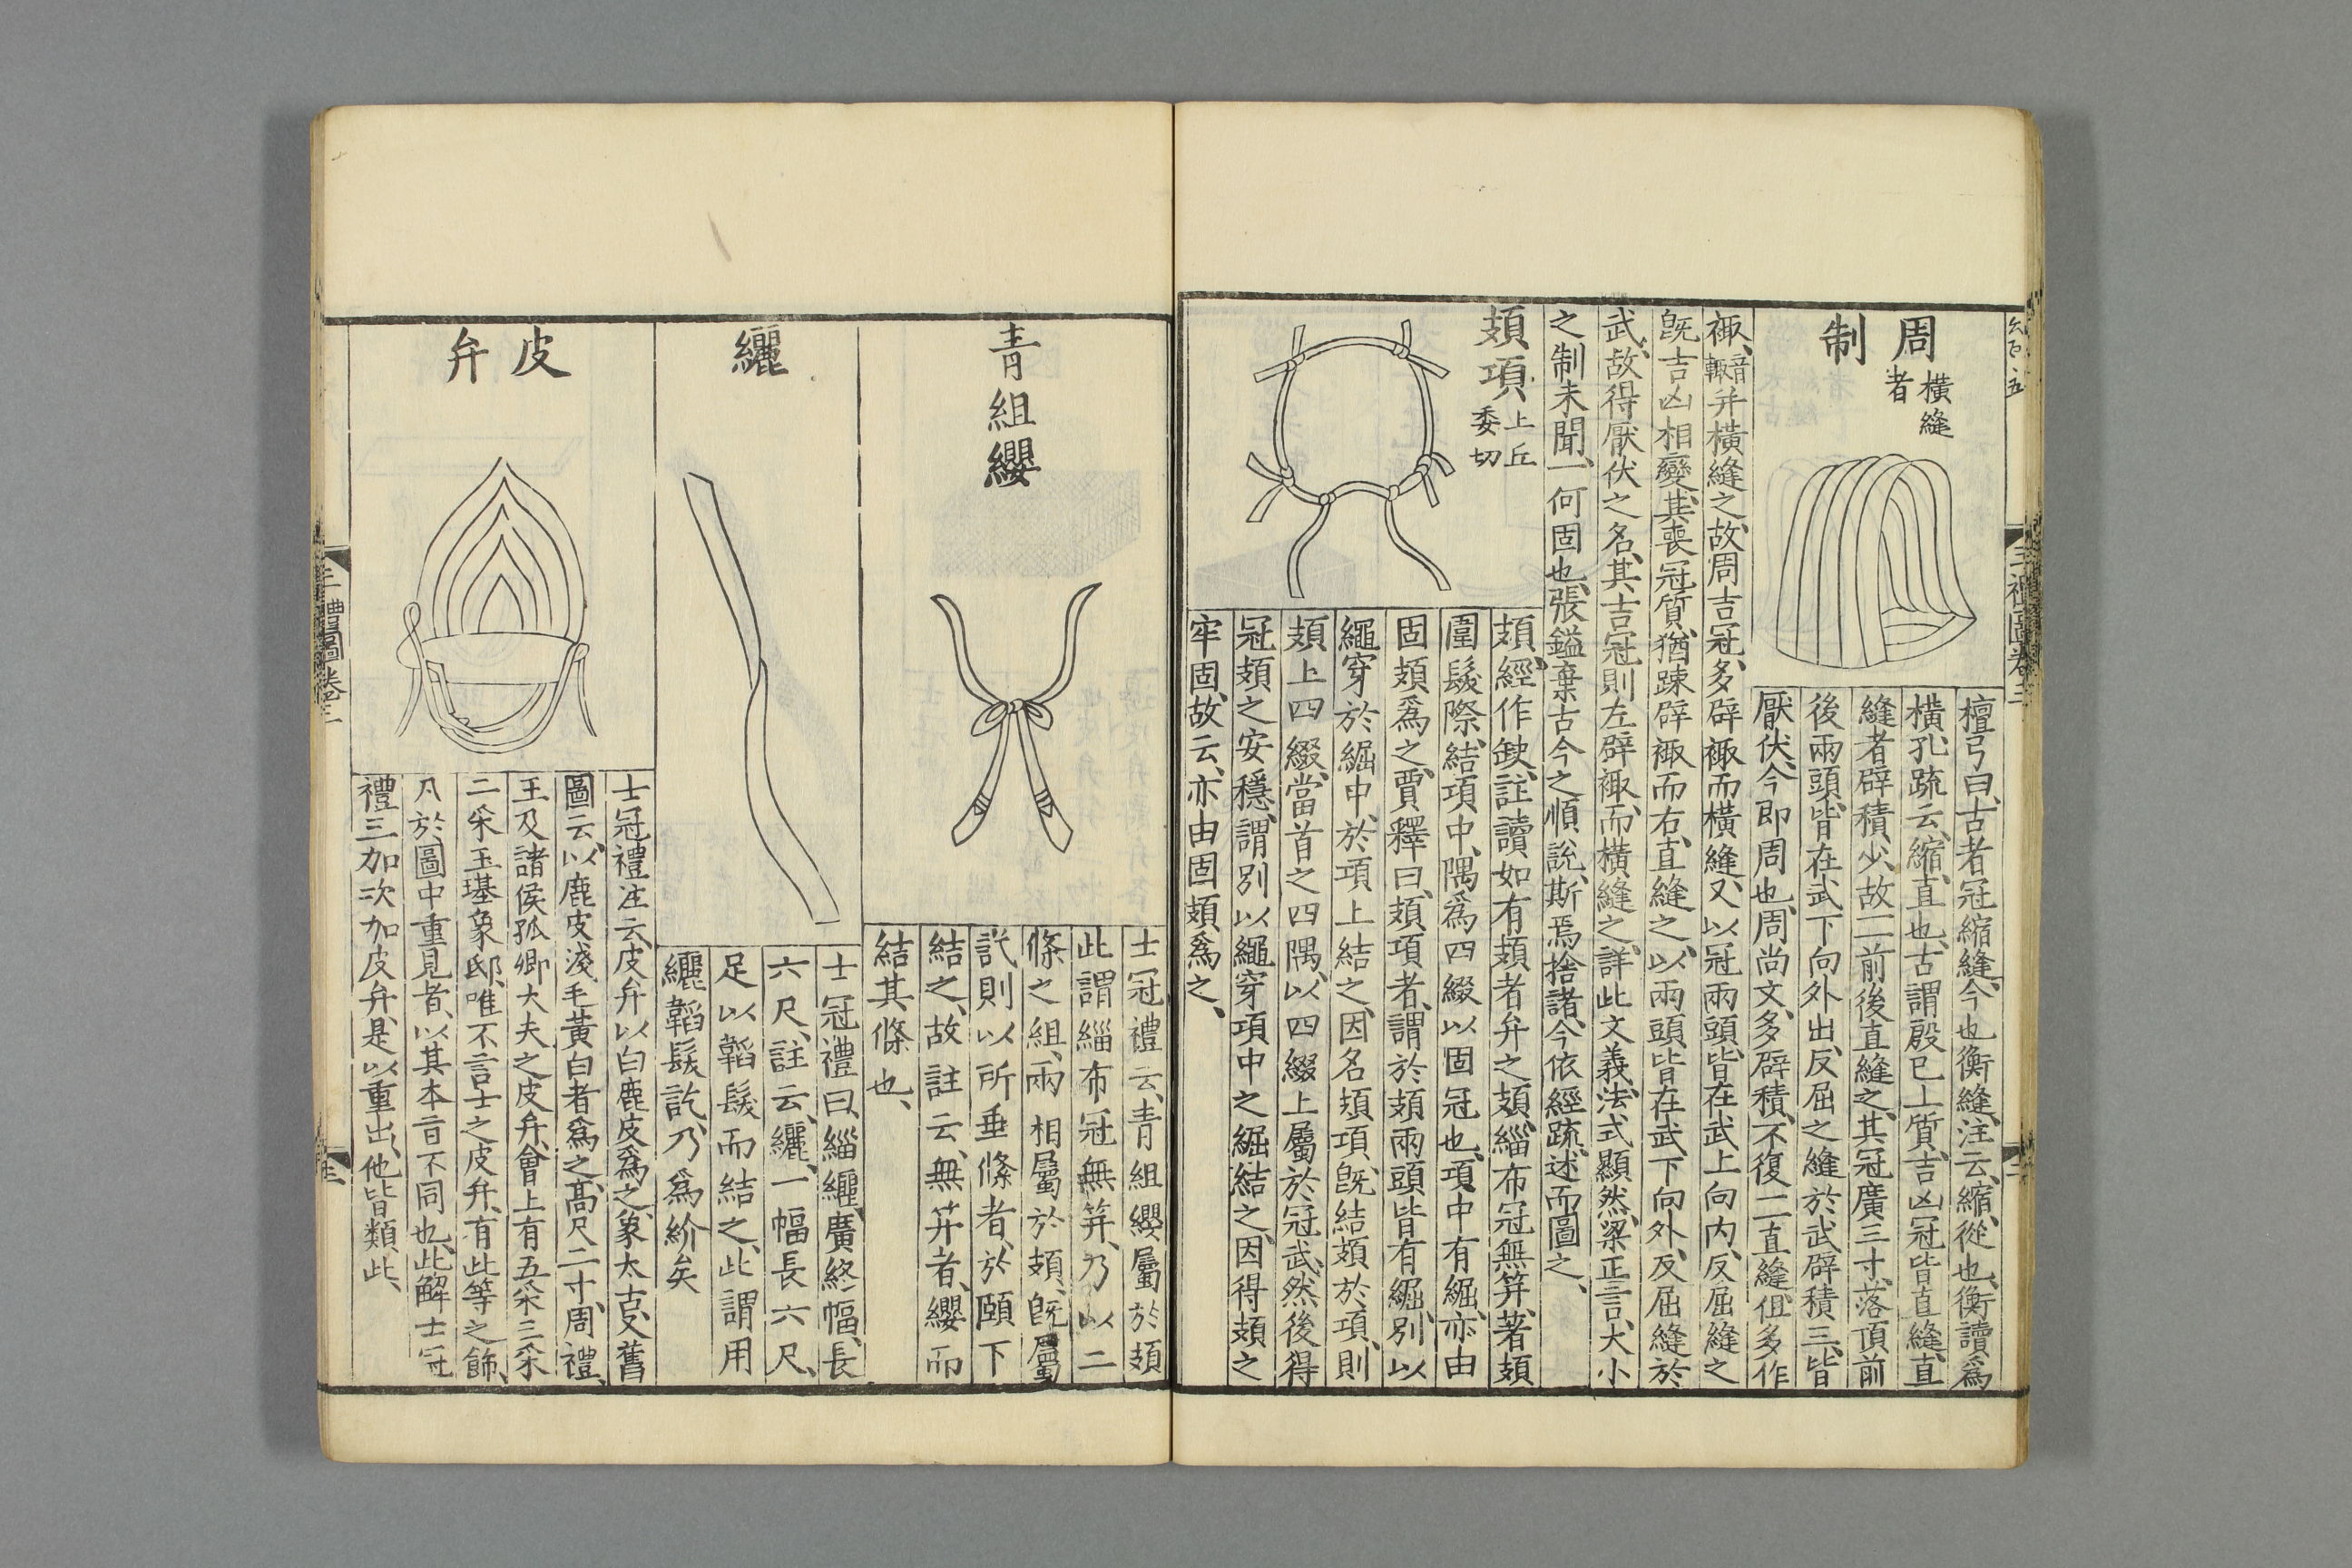 周制
橫縫者
檀弓曰、古者冠縮縫、今也衡縫、注云、縮、從也、衡、讀爲
橫、孔疏云、縮、直也、古謂殷已上質、吉凶冠皆直縫、直
縫者、辟積少、故一一前後直縫之、其冠廣三寸、落頂前
後、兩頭、皆在武下向外出、反屈之縫於武、辟積三、皆
厭伏、今即周也、周尚文、多辟積、不復一一直縫、伹多作
襵、音輙并橫縫之、故周吉冠、多辟襵而橫縫、又以冠兩頭、皆在武上向内、反屈縫之
旣吉凶相變、其喪冠質、猶踈辟襵而右、直縫之、以兩頭皆在武、下向外、反屈縫於
武、故得厭伏之名、其吉冠則左辟襵、而橫縫之、詳此文義、法式顯然、梁正言、大小
之制未聞、一何固也、張鎰棄古今之順說、斯焉捨諸、今依經疏、述而圖之、
頍項
上丘委切
頍、經作缺、註讀如有頍者弁之頍、緇布冠無筓、著頍
圍髮際、結項、中、隅爲四綴以固冠也、項中有䋎、亦由
固頍爲之、賈釋曰、頍項者、謂於頍兩頭皆有䋎、別以
繩穿於䋎中、於項上結之、因名頍項、旣結頍於項、則
頍上四綴、當首之四隅、以四綴上屬於冠武、然後得
冠頍之安穩、謂別以繩穿項中之䋎結之、因得頍之
牢固、故云、亦由固頍爲之、
青組纓
士冠禮云、青組纓屬於頍
此謂緇布冠無筓、乃以二
條之組、兩相屬於頍、旣屬
訖則以所垂條者、於頤下
結之、故註云、無筓者、纓而
結其條也、
纚
士冠禮曰、緇纚廣終幅、長
六尺、註云、纚、一幅長六尺、
足以韜髮而結之、此謂用
纚韜髮訖、乃爲紒矣
皮弁
士冠禮注云、皮弁以白鹿皮爲之、象太古、又舊
圖云、以鹿皮淺毛黃白者爲之、高尺二寸、周禮、
王及諸侯孤卿大夫之皮弁、會上有五采三采
二采玉璂象邸、唯不言士之皮弁、有此等之飾、
凡於圖中重見者、以其本旨不同也、此解士冠
禮三加次加皮弁、是以重出、他皆類此、
三禮圖卷三
三禮圖卷三